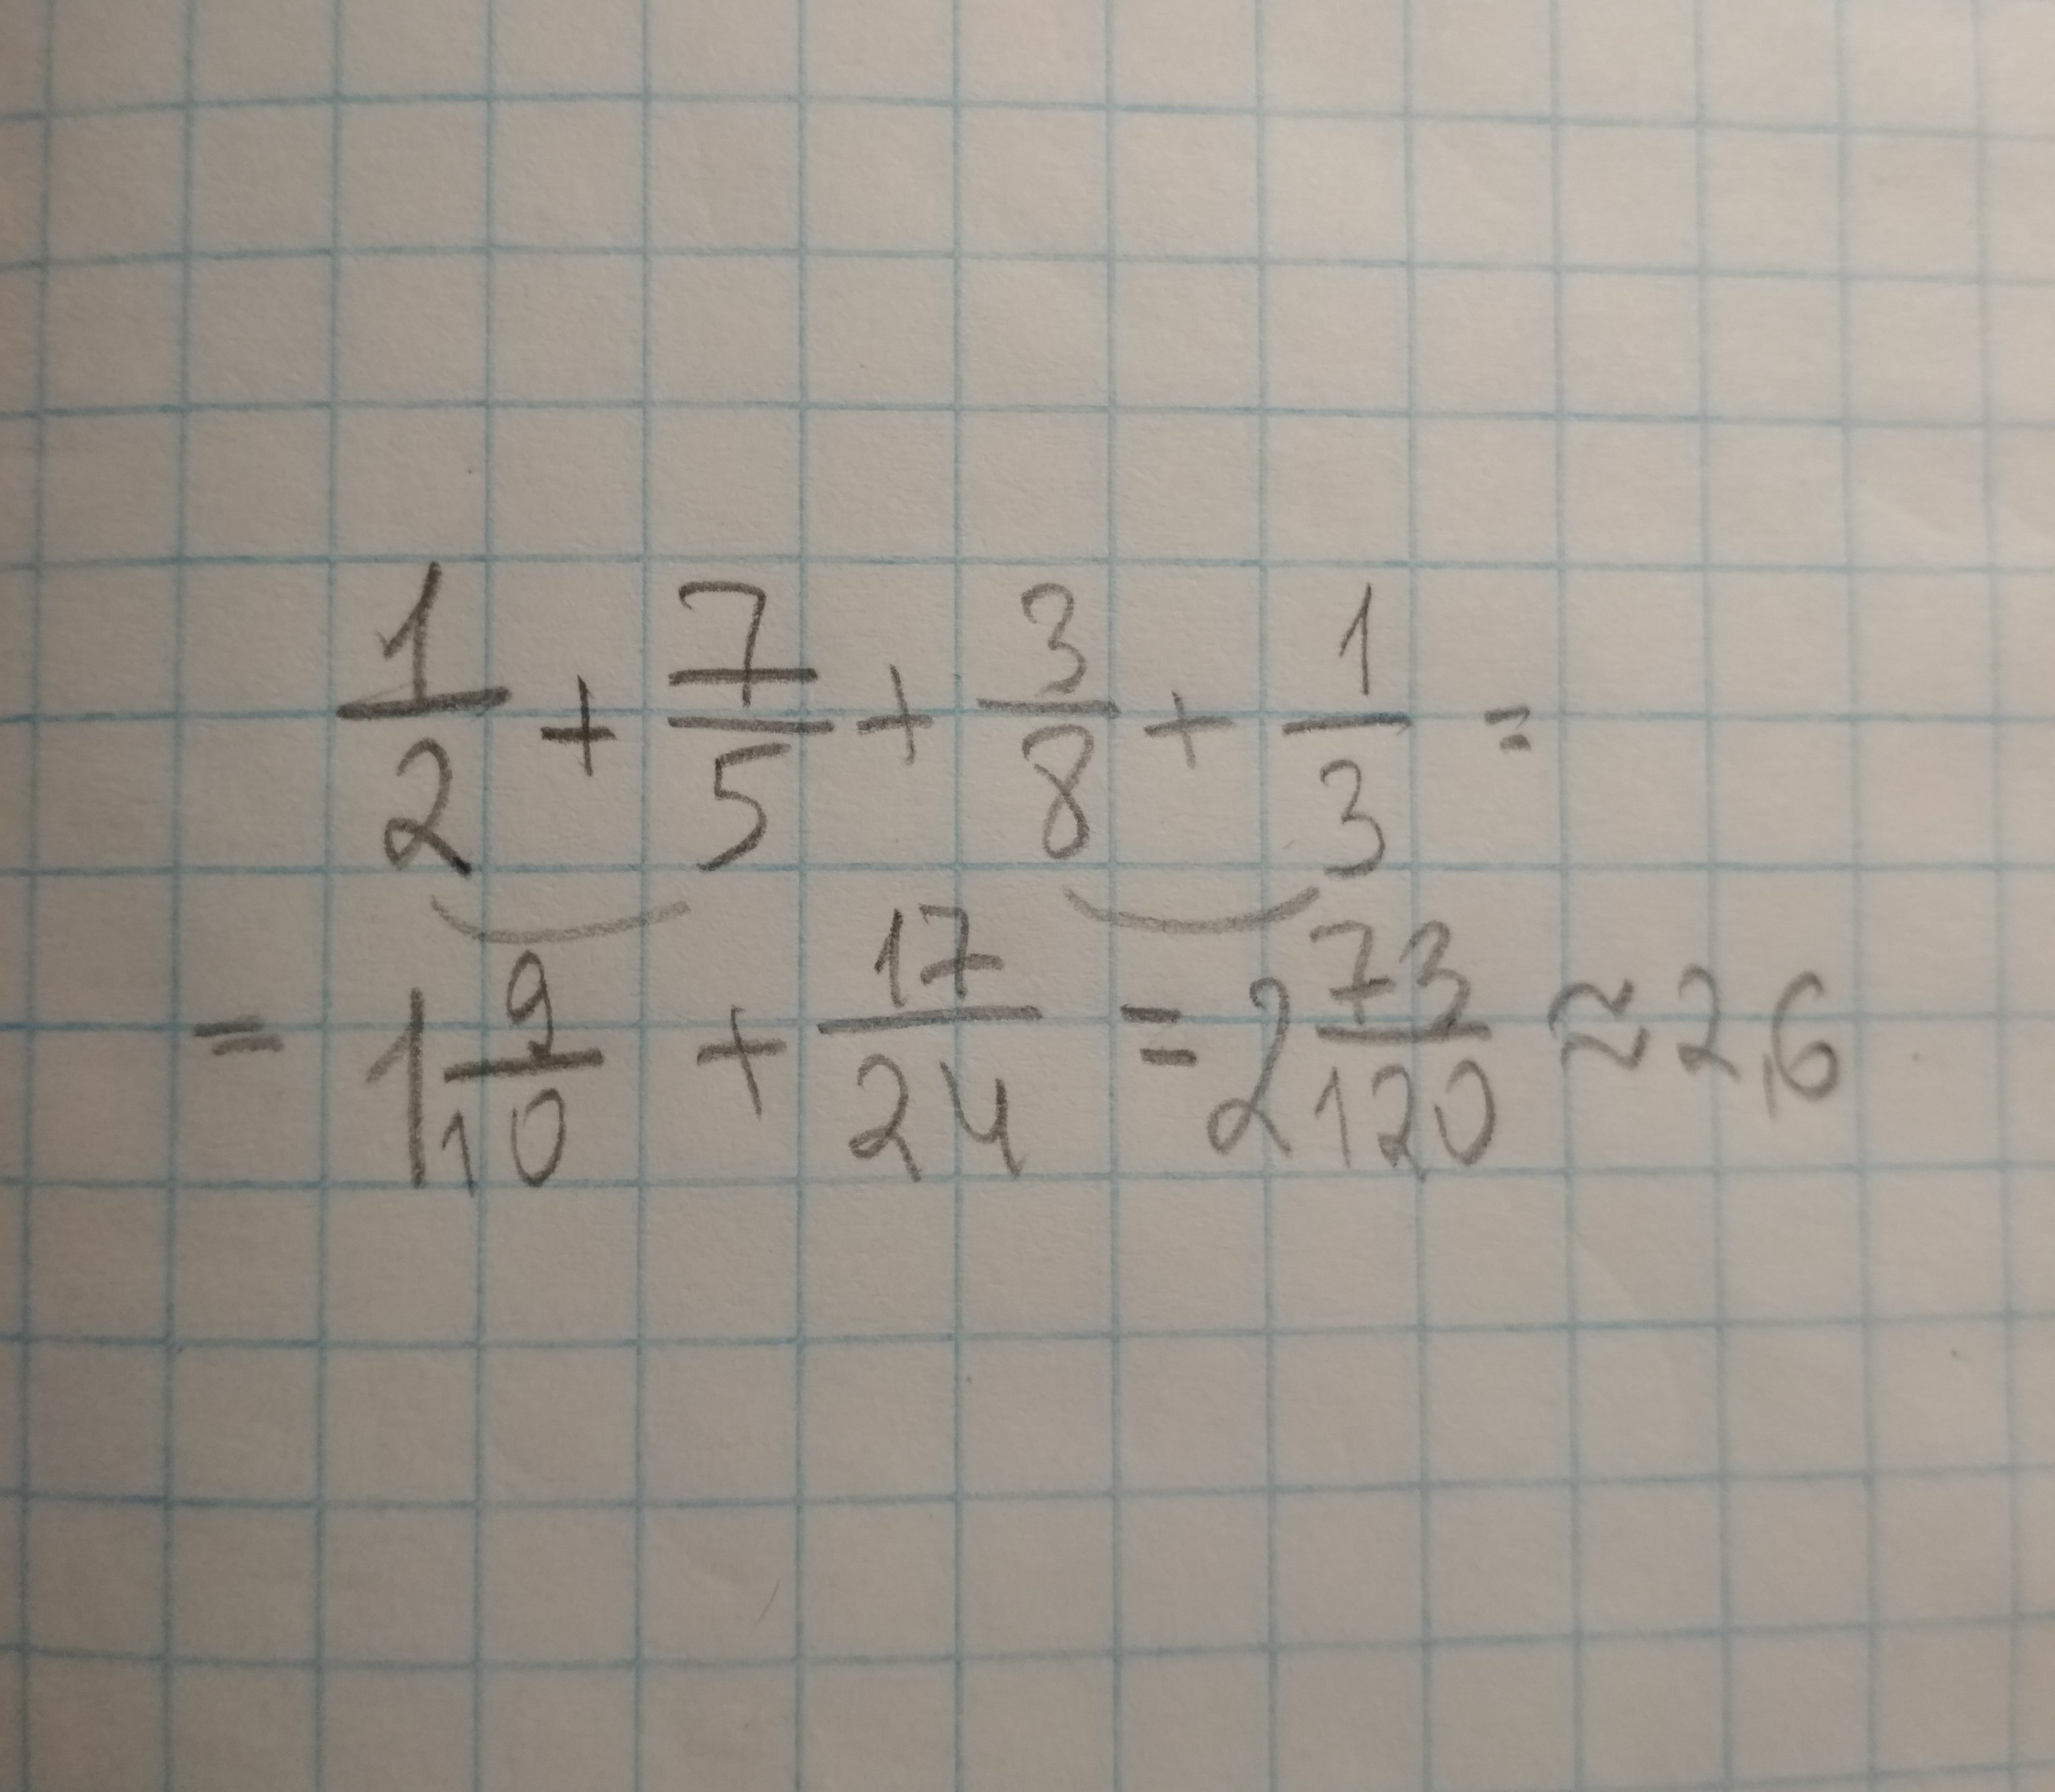 1/2 + 7/5 + 3/8 + 1/3 =
= 1 9/10 + 17/24 = 2 73/120 ≈ 2,6